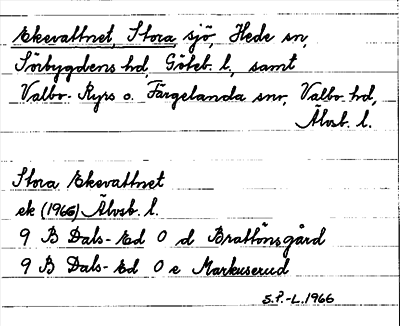 Ekevattnet, Stora, sjö, Hede sn,
Sörbygdens hd, Göteb. l., samt
Valbo-Ryrs o. Färgelanda snr, Valbo hd,
Älvsb. l.
Stora Ekevattnet
ek (1966) Älvsb. l.
9 B Dals-Ed 0 d Brattönsgård
9 B Dals-Ed 0 e Markuserud
S.F.-L. 1966